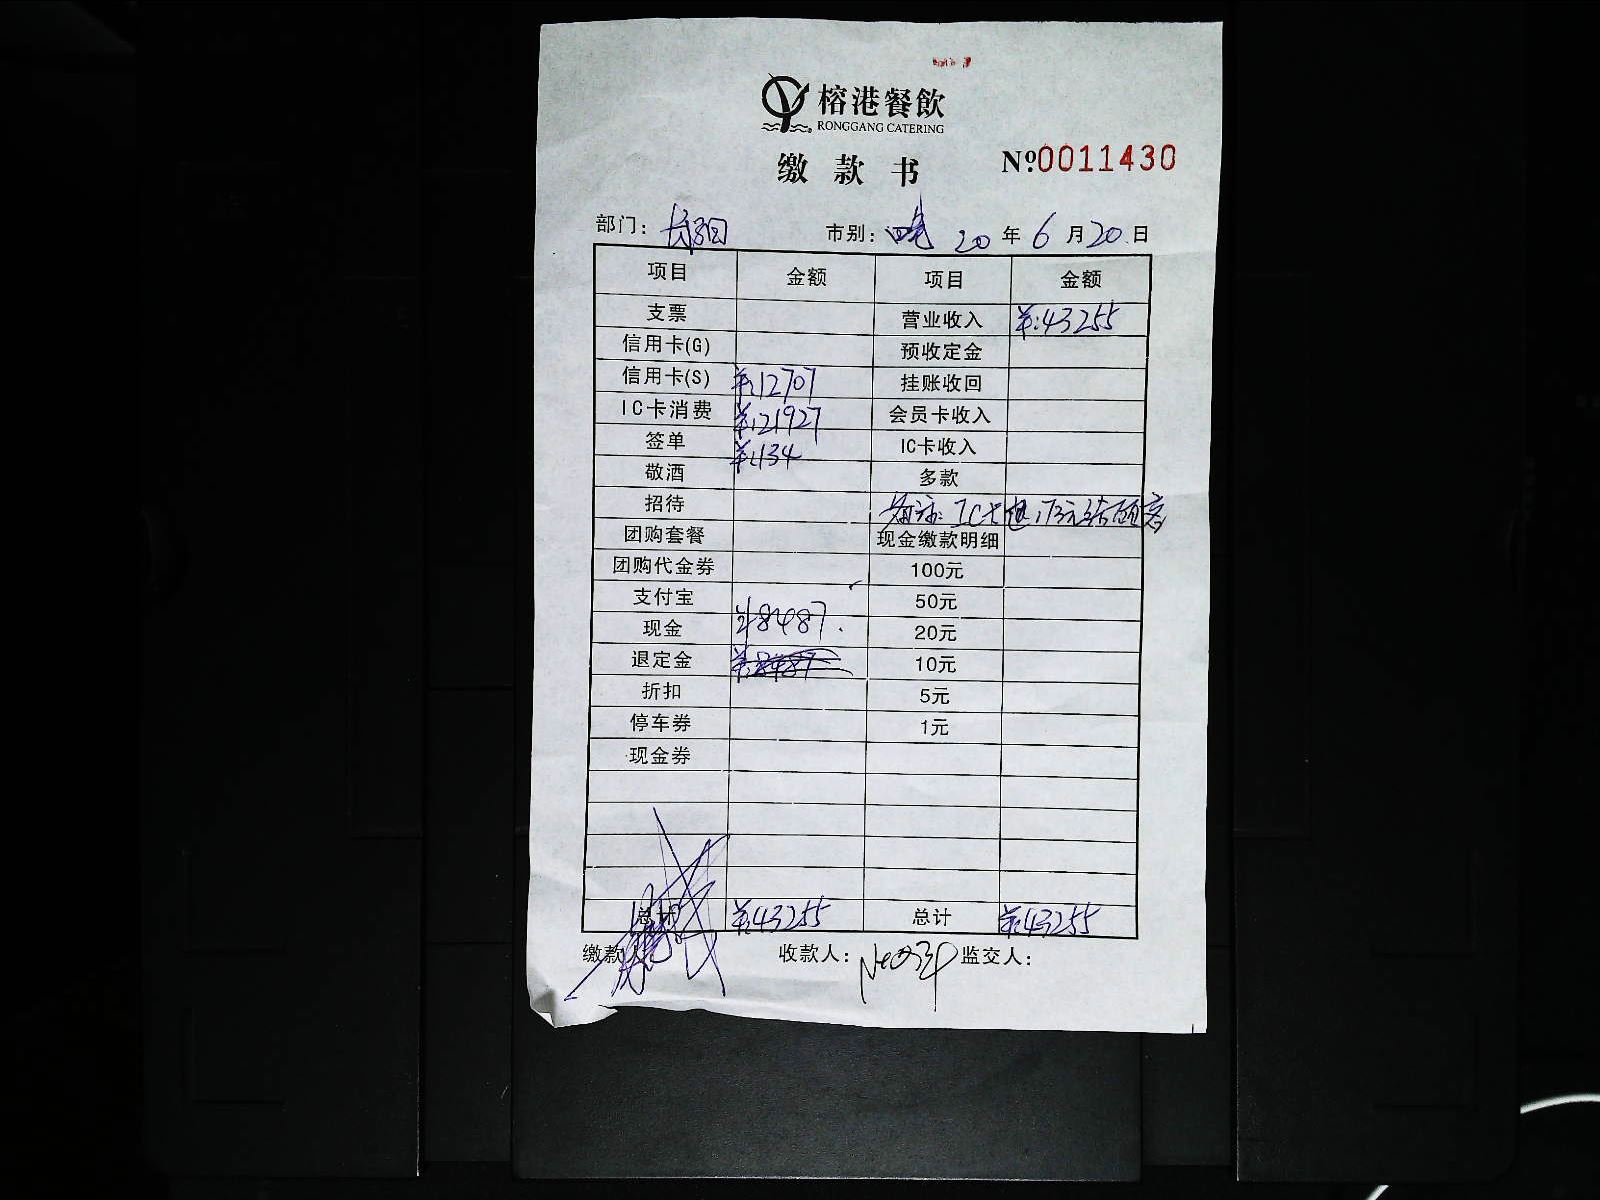 榕港餐飲
RONGGANG CATERING
缴款书 №0011430
部门: 市别: 晚 20 年 6 月 20 日
项目 金额 项目 金额
支票 营业收入 ¥:43255
信用卡(G) 预收定金
信用卡(S) ¥:12707 挂账收回
IC卡消费 ¥:21927 会员卡收入
签单 ¥:134 IC卡收入
敬酒 多款
招待 备注: IC卡
团购套餐 现金缴款明细
团购代金券 100元
支付宝 50元
现金 ¥8487. 20元
退定金 ¥:8487 10元
折扣 5元
停车券 1元
现金券
总计 ¥:43255 总计 ¥:43255
缴款 收款人: 监交人: